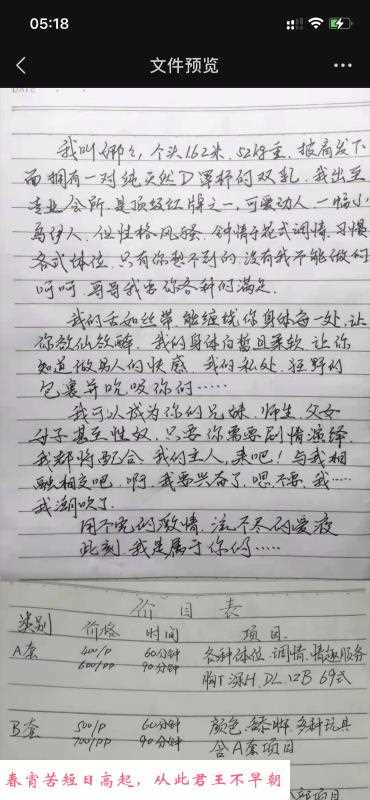 05:18
文件预览
DATE
我叫娜々，个头1.62米，52公斤重，披肩发下
面拥有一对纯天然D罩杯的双乳，我出至
专业会所，是顶级红牌之一，可爱动人，一幅小
鸟伊人，但性格风骚，钟情于花式调情，习惯
各式体位，只有你想不到的，没有我不能做的
呵呵，哥哥我当你各种的满足.
我们舌如丝带，能缠绕你身体每一处，让
你欲仙欲醉，我们身体白皙且柔软，让你
知道做男人的快感，我们私处，狂野的
包裹并吮吸你们……
我可以成为你们的兄妹，师生，父女
母子甚至性奴，只要你需要剧情演绎
我都将配合，我们主人，来吧！与我相
融相交吧，啊，我要兴奋了，嗯，不要，我……
我潮吹了.
用不完的激情，流不尽的爱液
此刻，我是属于你的……
价目表
类别 价格 时间 项目
A套 400/P 60分钟 各种体位，调情，情趣服务
600/PP 90分钟 胸T 深H DL 12B 69式
B套 500/P 60分钟 颜色 多种玩具
700/PP 90分钟 含A套项目
春宵苦短日高起，从此君王不早朝